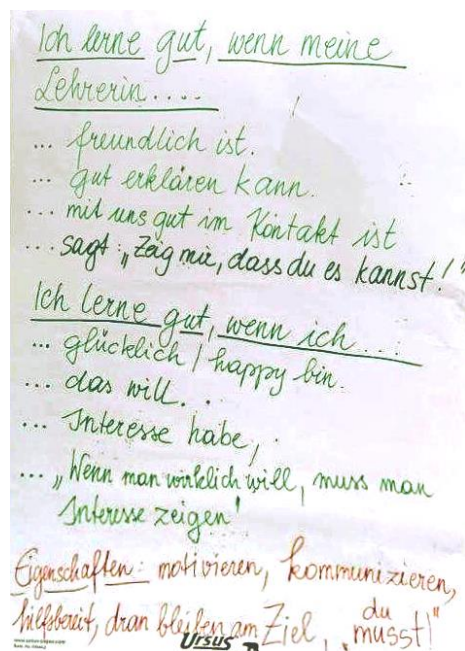 Ich lerne gut, wenn meine
Lehrerin....
... freundlich ist.
... gut erklären kann.
... mit uns gut im Kontakt ist
... sagt: „Zeig mir, dass du es kannst!"
Ich lerne gut, wenn ich...:
... glücklich / happy bin.
... das will..
... Interesse habe,
... „Wenn man wirklich will, muss man
Interesse zeigen"
Eigenschaften: motivieren, kommunizieren,
hilfsbereit, dran bleiben am Ziel, „du
musst!"
Ursus